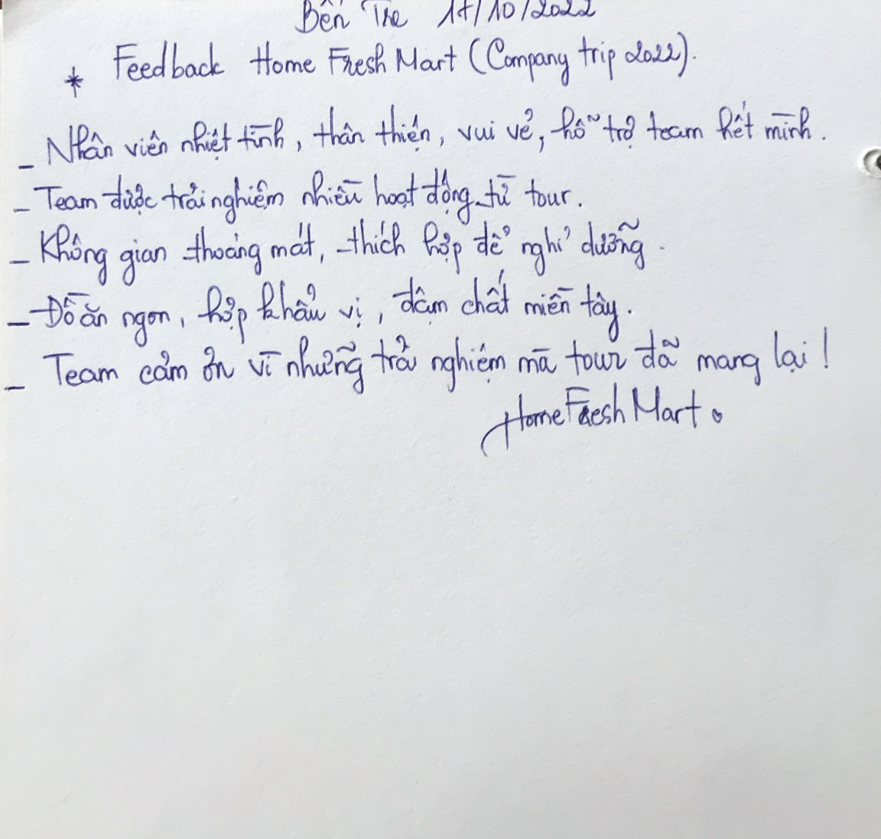 Bến Tre 17/10/2022
* Feedback Home Fresh Mart (Company trip 2022).
- Nhân viên nhiệt tình, thân thiện, vui vẻ, hỗ trợ team hết mình.
- Team được trải nghiệm nhiều hoạt động từ tour.
- Không gian thoáng mát, thích hợp để nghỉ dưỡng.
- Đồ ăn ngon, hợp khẩu vị, đậm chất miền tây.
- Team cảm ơn vì những trải nghiệm mà tour đã mang lại!
Home Fresh Mart.